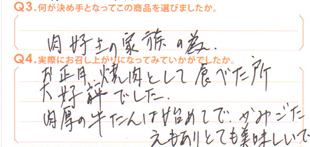 Q3.何が決め手となってこの商品を選びましたか。
肉好きの家族の為。
Q4.実際にお召し上がりになってみていかがでしたか。
お正月、焼肉として食べた所
大好評でした。
肉厚の牛たんは始めてで、かみごた
えもありとても美味しいで